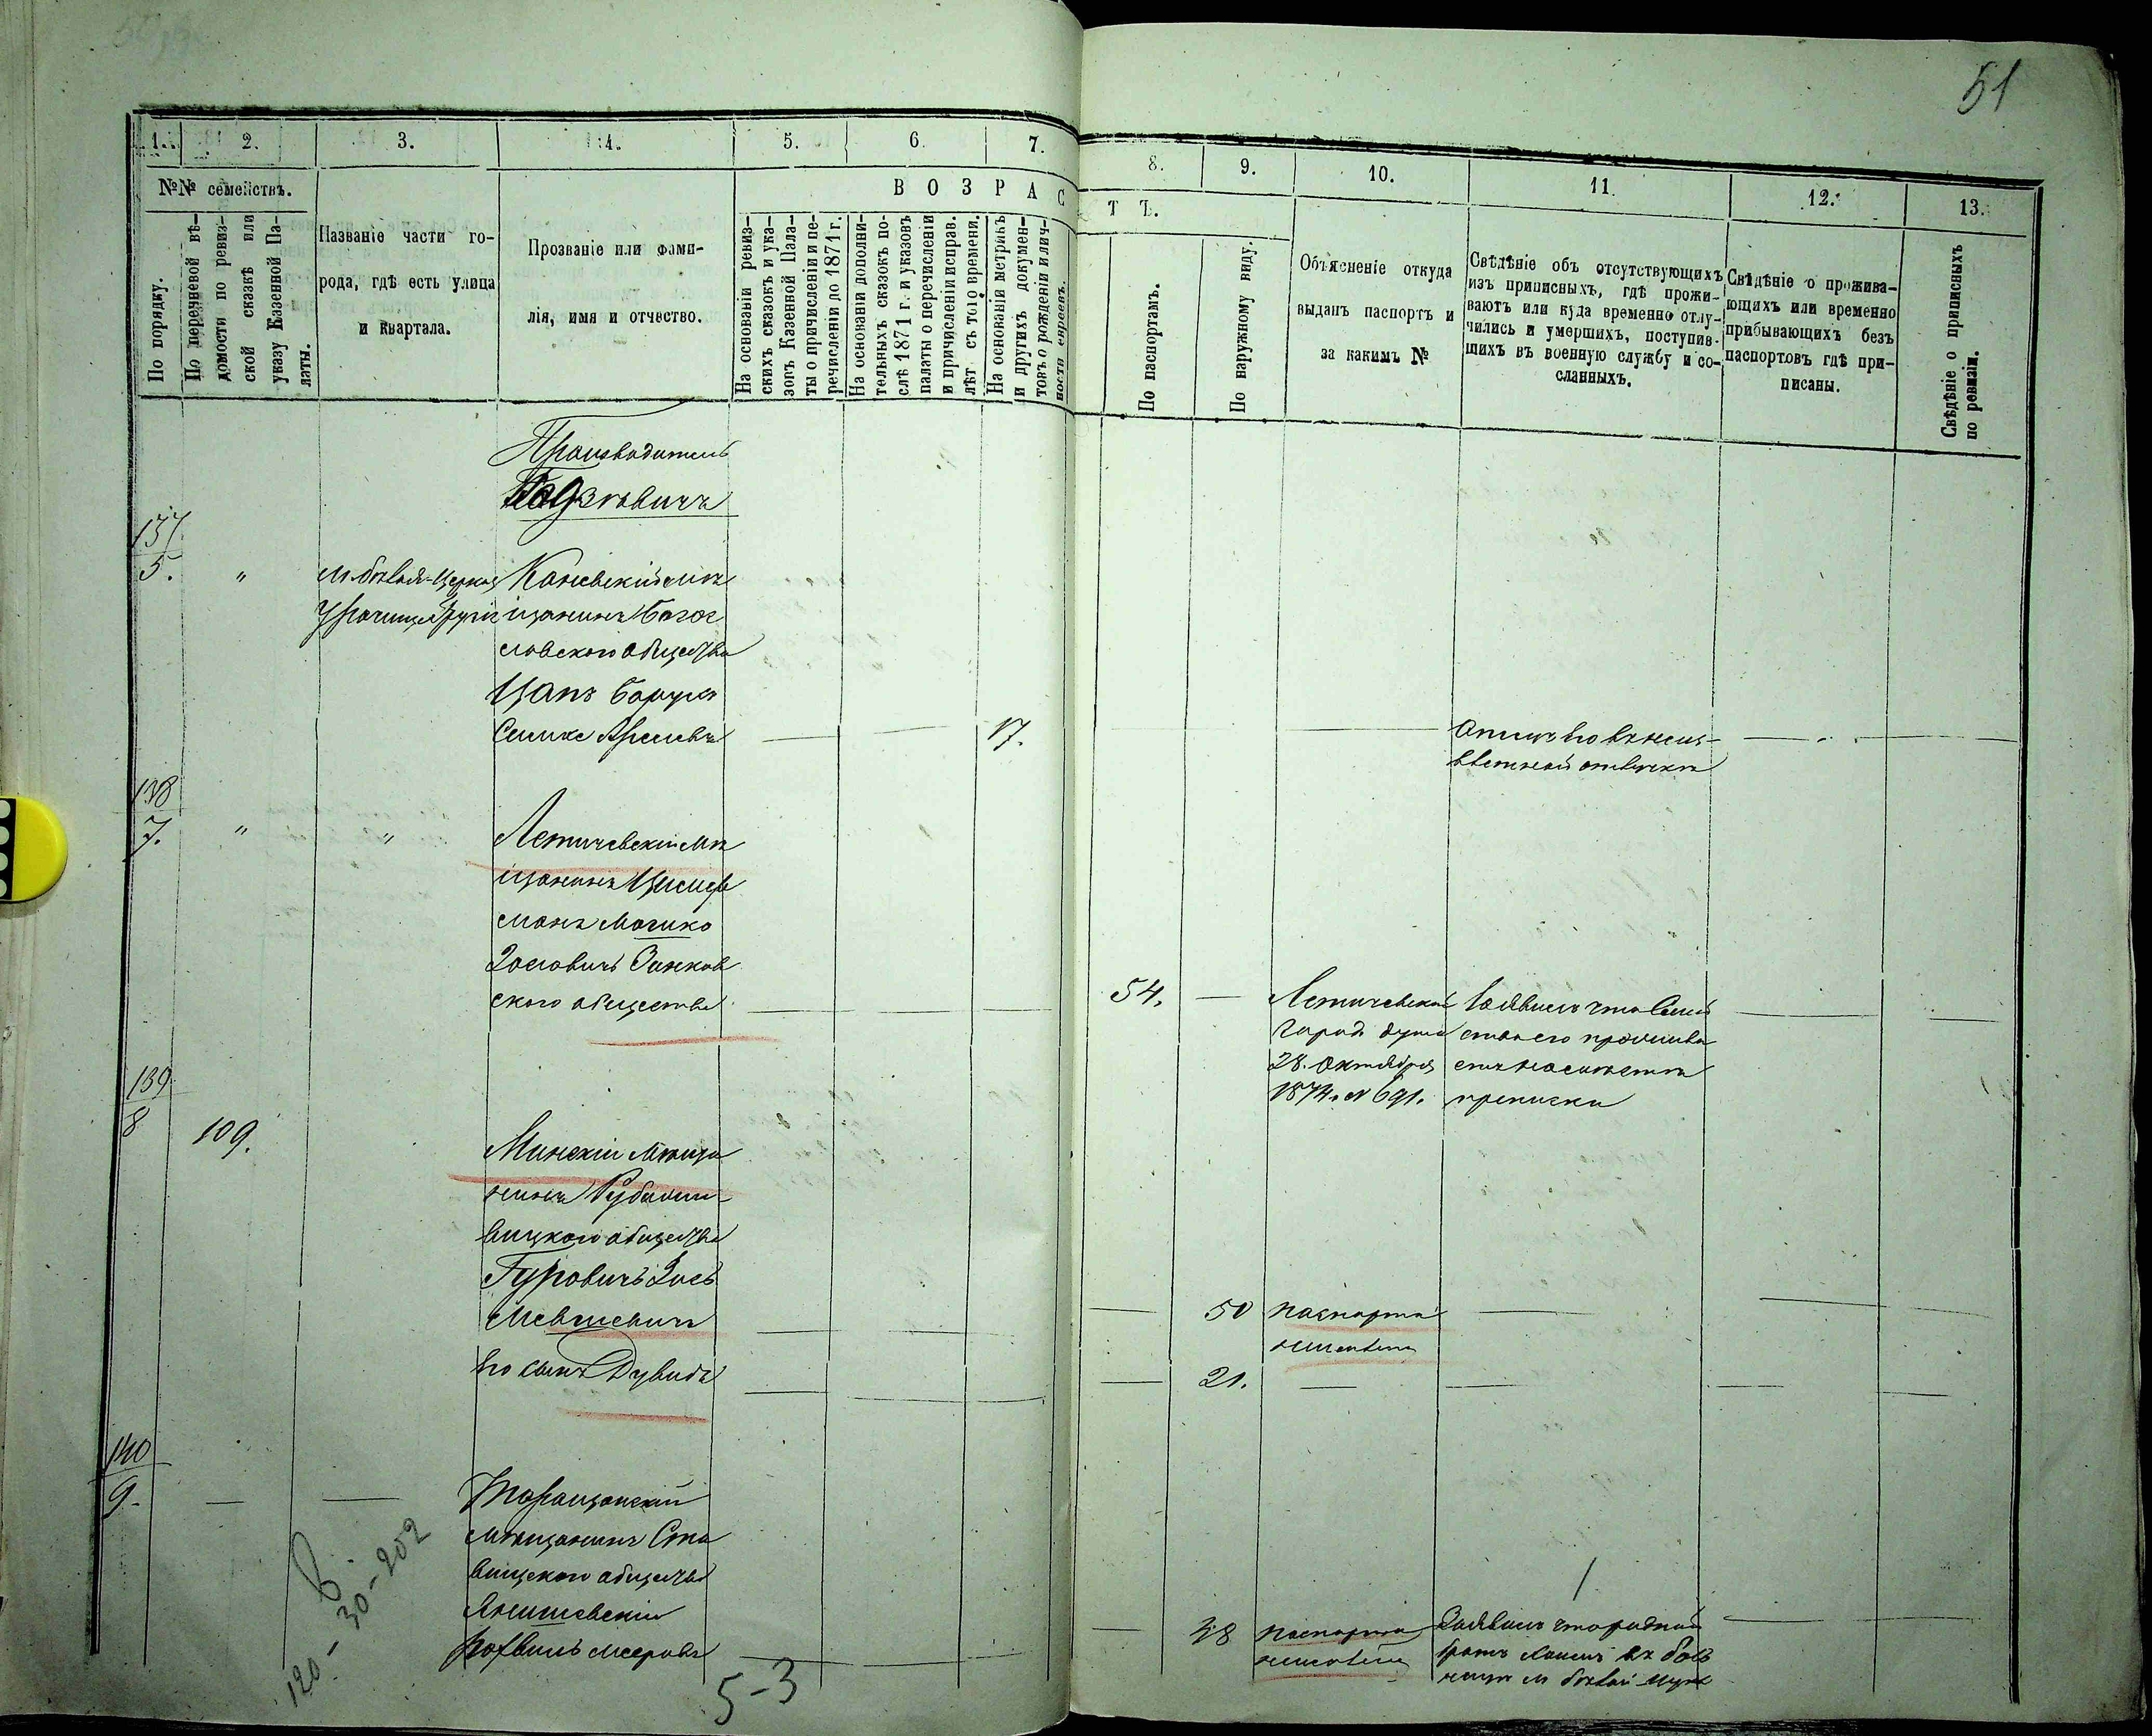 51
1. 2. 3. 4. 5. 6. 7. 8. 9. 10. 11. 12. 13.
№№ семействъ.
В О З Р А С Т Ъ.
По порядку.
По перечневой вѣ-
домости по ревиз-
ской сказкѣ или
указу Казенной Па-
латы.
Названіе части го-
рода, гдѣ есть улица
и квартала.
Прозваніе или фами-
лія, имя и отчество.
На основаніи ревиз-
скихъ сказокъ и ука-
зовъ Казенной Пала-
ты о причисленіи и пе-
речисленіи до 1871 г.
На основаніи дополни-
тельныхъ сказокъ по-
слѣ 1871 г. и указовъ
палаты о перечисленіи
и причисленіи исправ.
лѣт съ того времени.
На основаніи метрикъ
и другихъ докумен-
товъ о рожденіи и лич-
ности евреевъ.
По паспортамъ.
По наружному виду.
Объясненіе откуда
выданъ паспортъ и
за какимъ №
Свѣдѣніе объ отсутствующихъ
изъ приписныхъ, гдѣ прожи-
ваютъ или куда временно отлу-
чились и умершихъ, поступив-
шихъ въ военную службу и со-
сланныхъ.
Свѣдѣніе о прожива-
ющихъ или временно
прибывающихъ безъ
паспортовъ гдѣ при-
писаны.
Свѣдѣніе о приписныхъ
по ревизіи.
Производитель
137
5. " м. бѣлая-Церковь Каневскій мѣ
Урочище щанинъ Богос
ловского общества
Цапъ Борухъ
17.
138
7. " " Летичевскій мѣ
щанинъ Цимер
манъ Мошко
Зосіовичъ Зинков
ского общества
54. — Летичевской
город. думой
28. Октября
1874. № 691.
Заявилъ что Семей
ство его прожива
етъ на мѣстѣ
приписки
139
8 109. Минскій мѣща
нинъ
вицкого общества
Гуровичъ Зусь
Мевшевичъ
50 паспорта
неимѣетъ
Его сынъ Дувидъ
21.
140
9. — — Таращанскій
мѣщанинъ Ста
вищского общества
Янишевскій
Мееровъ
38 паспорта
неимѣетъ
Заявилъ что родной
братъ въ боль
ницѣ м бѣлой Церк
120-30-202
5-3